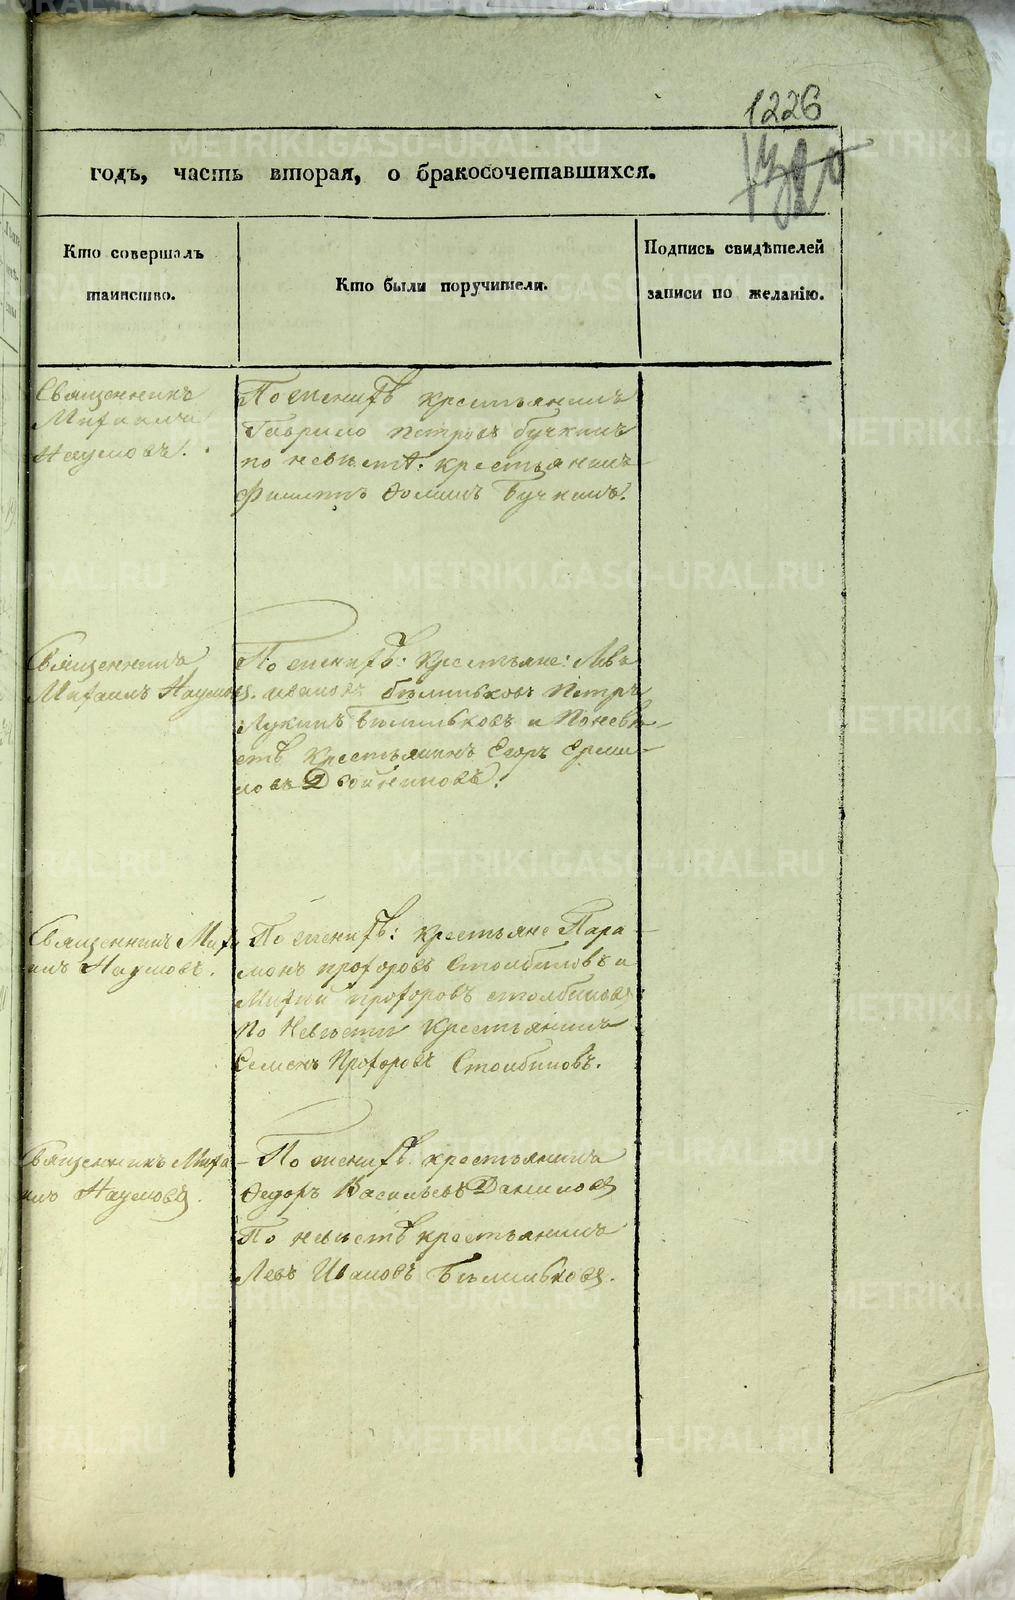 1226
годъ, часть вторая, о бракосочетавшихся.
Кто совершалъ
таинство.
Кто были поручители.
Подпись свидѣтелей
записи по желанію.
Священникъ
Михаилъ
Наумовъ.
По женихѣ крестьянинъ
Гаврило Петровъ Бучкинъ
по невѣстѣ. крестьянинъ
Филипъ Фоминъ Бучкинъ.
Священникъ
Михаилъ Наумовъ.
По женихѣ: Крестьяне: Левъ
Ивановъ Бѣлильковъ Петръ
Лукинъ Бѣлильковъ и По невѣ-
стѣ Крестьянинъ Егоръ Ерми-
ловъ Двойниковъ.
Священникъ Миха
илъ Наумовъ.
По женихѣ: крестьяне Пара-
монъ Прохоровъ Столбиковъ и
Прохоровъ Столбиковъ
По Невѣсти Крестьянинъ
Семенъ Прохоровъ Столбиковъ.
Священникъ Миха-
илъ Наумовъ.
По женихѣ крестьянинъ
Федоръ Васильевъ Даниловъ
По невѣстѣ крестьянинъ
Левъ Ивановъ Бѣлильковъ.
METRIKI.GASO-URAL.RU